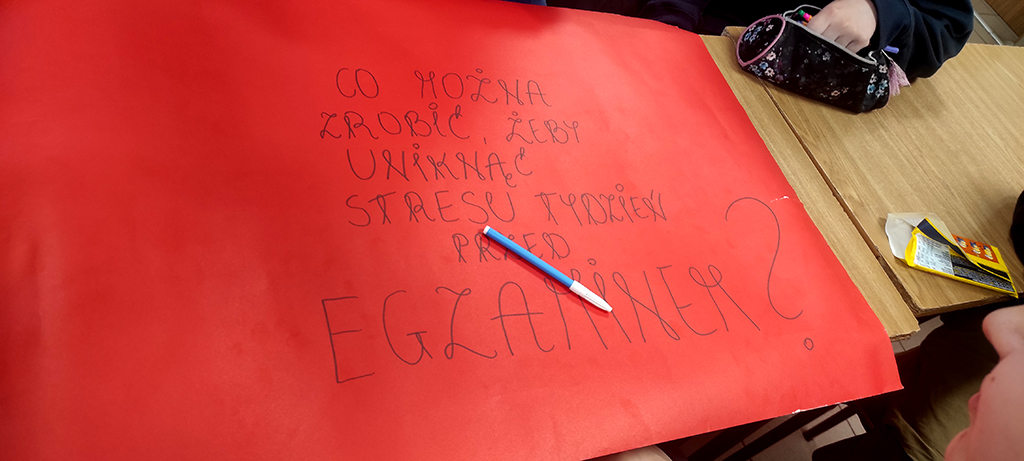 CO MOŻNA
ZROBIĆ, ŻEBY
UNIKNĄĆ
STRESU TYDZIEŃ
PRZED
EGZAMINEM?